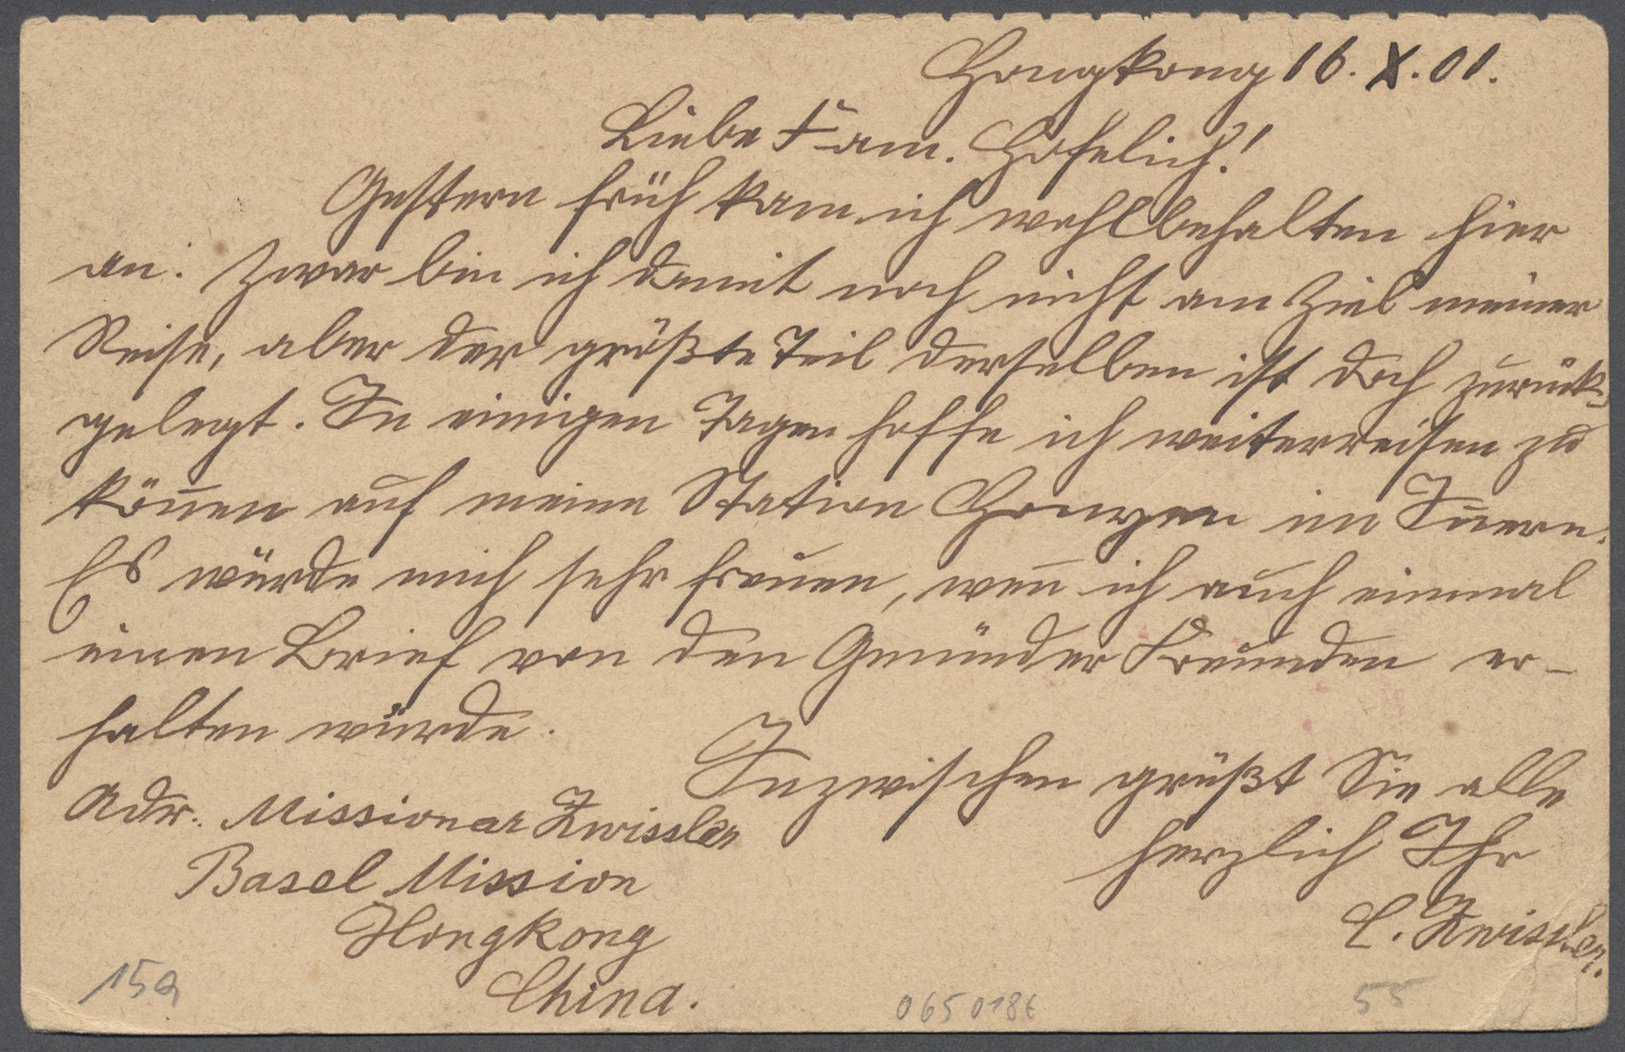 Hongkong 16. X. 01.
Liebe Fam. Höfelich!
Gestern früh kam ich wohlbehalten hier
an. Zwar bin ich damit noch nicht am Ziel meiner
Reise, aber der größte Teil derselben ist doch zurück-
gelegt. In einigen Tagen hoffe ich weiterreisen zu
kön̄en auf meine Station Honyen im In̄ern.
Es würde mich sehr freuen, wen̄ ich auch einmal
einen Brief von den Gmünder Freunden er-
halten würde.
Inzwischen grüßt Sie alle
herzlich Ihr
C. Zwissler.
Adr. Missionar Zwissler
Basel Mission
Hongkong
China.
15a
0650186
55